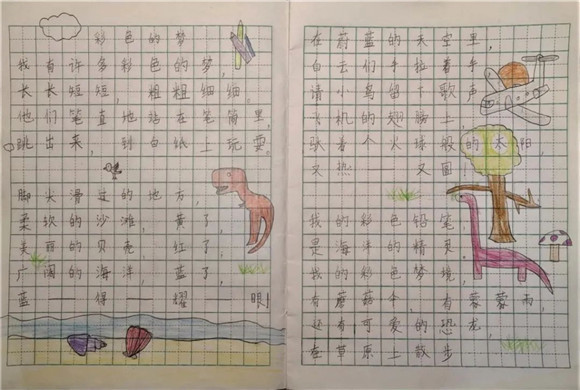 彩色的梦
我有许多彩色的梦，
长长短短，粗粗细细，
他们笔直地站在笔筒里，
跳出来，到白纸上玩耍。
脚尖滑过的地方，
柔软的沙滩，黄了，
美丽的贝壳，红了，
广阔的海洋，蓝了，
蓝——得——耀——眼！
在蔚蓝的天空里，
白云们手拉着手
请小鸟留下歌声
飞机的翅膀上，
驮着个火球般的太阳，
又热——又圆！
我的彩色铅笔，
是海洋的精灵，
我的彩色梦境，
有蘑菇伞，有蒙蒙雨，
还有可爱的恐龙，
在草原上散步